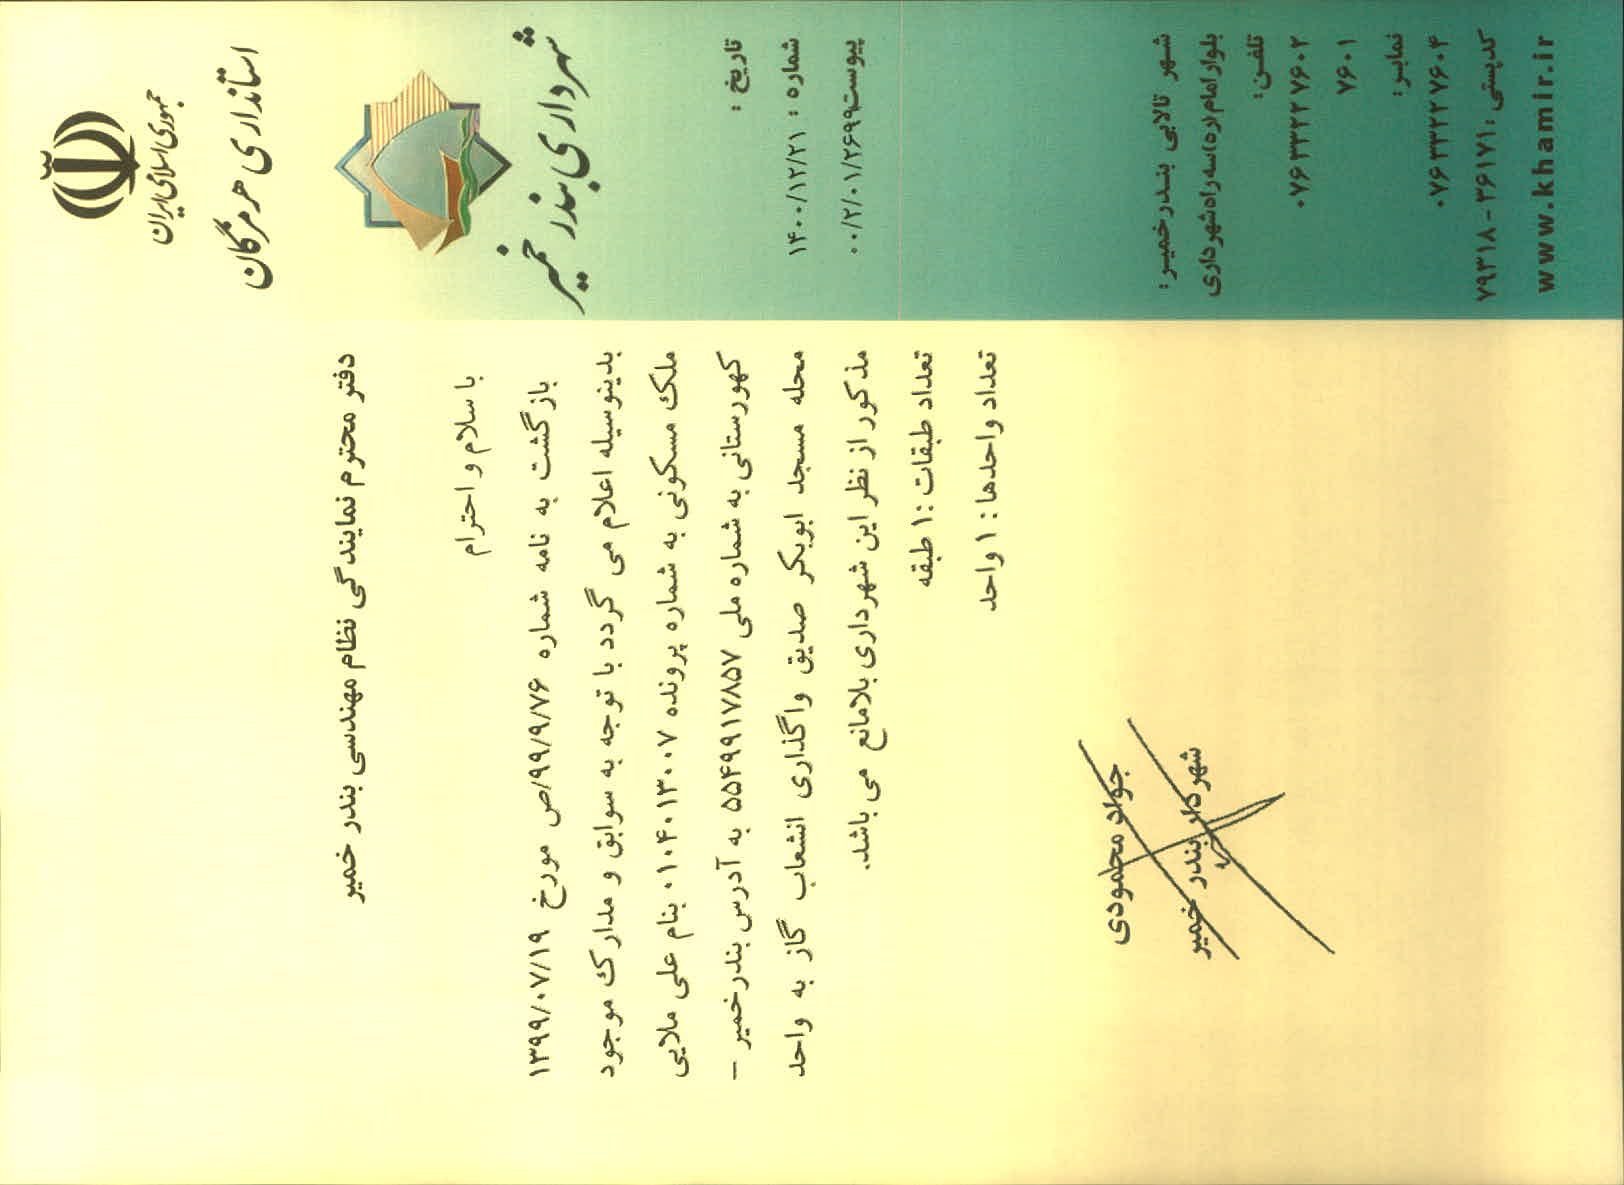 جمهوری اسلامی ایران
استانداری هرمزگان
شهرداری بندر خمیر
تاریخ :
شماره : ۱۴۰۰/۱۲/۲۱
پیوست۰۰/۲/۰۱/۲۶۹۹
دفتر محترم نمایندگی نظام مهندسی بندر خمیر
با سلام و احترام
بازگشت به نامه شماره ۹۹/۹/۷۶/ص مورخ ۱۳۹۹/۰۷/۱۹
بدینوسیله اعلام می گردد با توجه به سوابق و مدارک موجود
ملک مسکونی به شماره پرونده ۰۱۰۴۰۱۳۰۰۷ بنام علی ملایی
کهورستانی به شماره ملی ۵۵۴۹۹۱۷۸۵۷ به آدرس بندرخمیر –
محله مسجد ابوبکر صدیق واگذاری انشعاب گاز به واحد
مذکور از نظر این شهرداری بلامانع می باشد.
تعداد طبقات :۱ طبقه
تعداد واحدها : ۱ واحد
جواد محمودی
شهردار بندر خمیر
شهر تالابی بندرخمیر:
بلوار امام(ره)سه راه شهرداری
تلفن:
۰۷۶۳۳۲۲۷۶۰۲
۷۶۰۱
نمابر:
۰۷۶۳۳۲۲۷۶۰۴
کدپستی: ۳۶۱۷۱ - ۷۹۳۱۸
www.khamir.ir